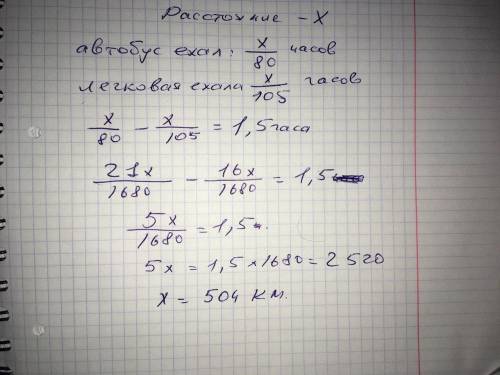 Расстояние - X
автобус ехал: x/80 часов
легковая ехала x/105 часов
x/80 - x/105 = 1,5 часа
21x/1680 - 16x/1680 = 1,5
5x/1680 = 1,5
5x = 1,5 x 1680 = 2520
x = 504 км.